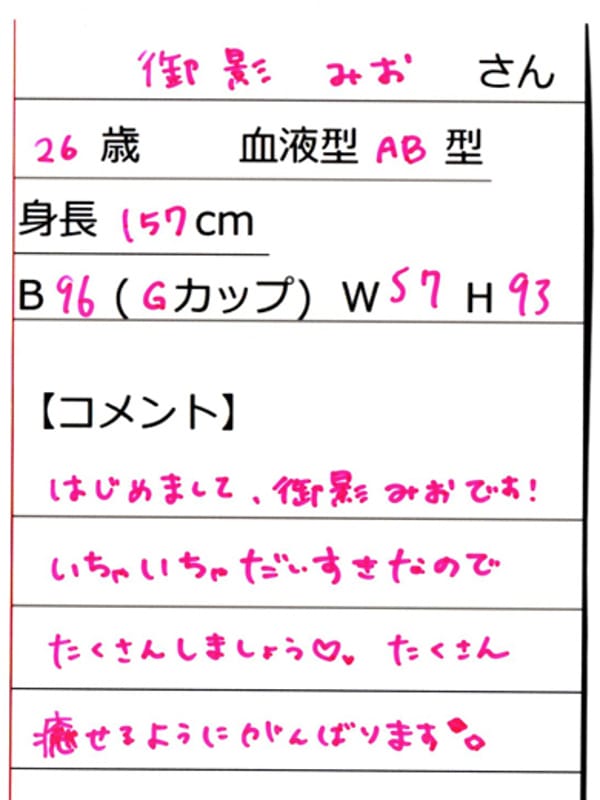 御影 みお さん
26 歳 血液型 AB 型
身長 157cm
B 96 (Gカップ) W 57 H 93
【コメント】
はじめまして、御影みおです!
いちゃいちゃだいすきなので
たくさんしましょう♡。たくさん
癒せるようにがんばります